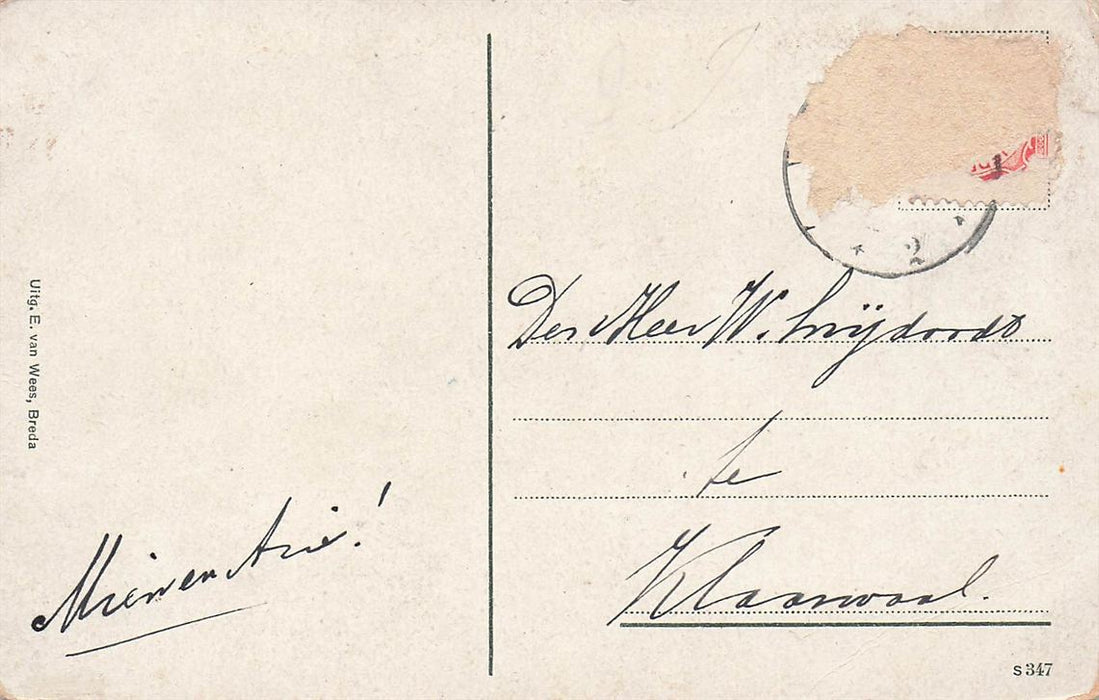 Uitg. E. van Wees, Breda
Mien en Arie!
2
Den Heer W.
te
Klaaswaal.
S 347